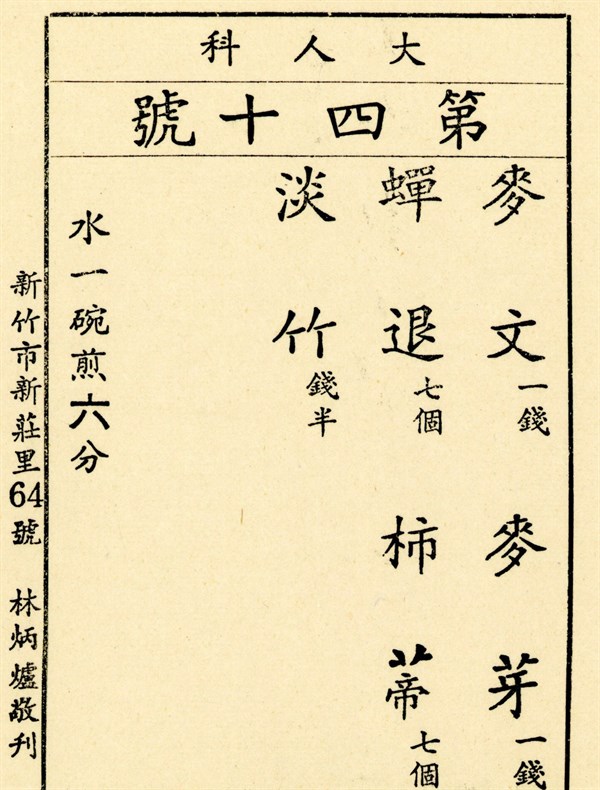 大人科
第四十號
麥文一錢 麥芽一錢
蟬退七個 柿蒂七個
淡竹錢半
水一碗煎六分
新竹市新莊里64號 林炳爐敬刊